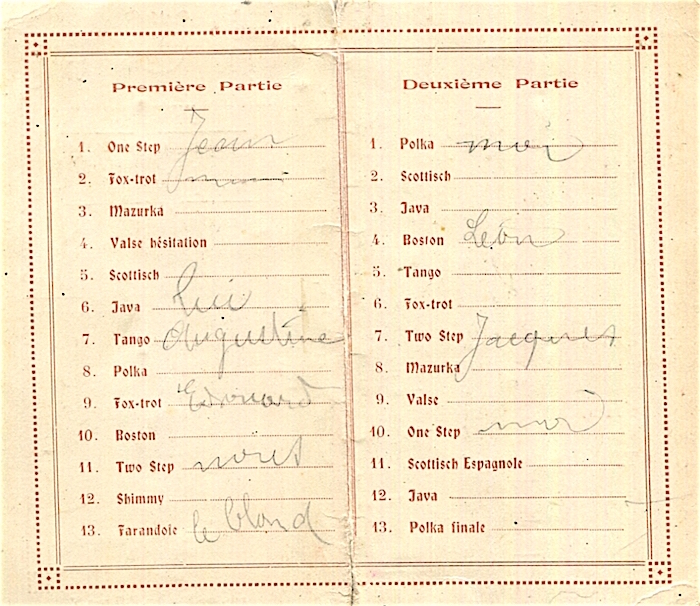 Première Partie
1. One Step Jean
2. Fox-trot
3. Mazurka
4. Valse hésitation
5. Scottisch
6. Java Lui
7. Tango Augustine
8. Polka
9. Fox-trot Edouard
10. Boston
11. Two Step
12. Shimmy
13. Farandole le blond
Deuxième Partie
1. Polka moi
2. Scottisch
3. Java
4. Boston Léon
5. Tango
6. Fox-trot
7. Two Step Jacques
8. Mazurka
9. Valse
10. One Step moi
11. Scottisch Espagnole
12. Java
13. Polka finale